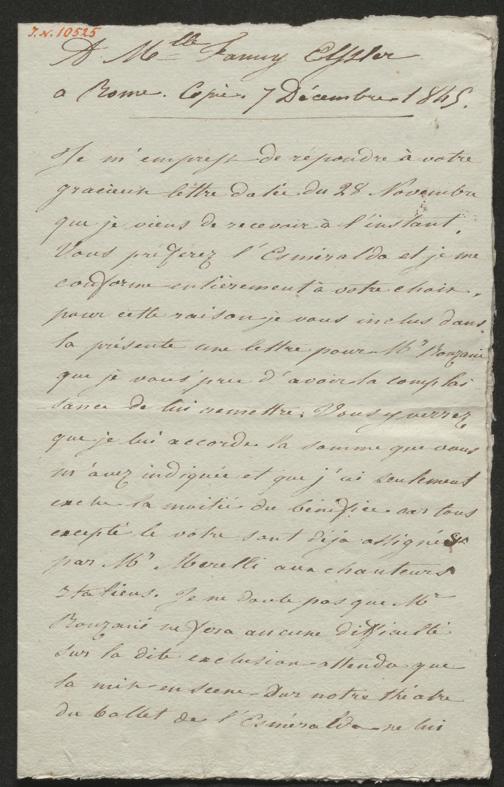 J.N. 10525
A Mlle Fanny Elssler
a Rome. Copie. 7 Décembre 1845.
Je m'empresse de répondre à votre
gracieuse lettre datée du 28 Novembre
que je viens de recevoir à l'instant.
Vous préférez l'Esméralda et je me
conforme entièrement à votre choix,
pour cette raison je vous inclus dans
la présente une lettre pour Mr Ronzani
que je vous prie d'avoir la complai
sance de lui remettre. Vous y verrez
que je lui accorde la somme que vous
m'avez indiquée et que j'ai seulement
exclu la moitié du bénéfice car tous
excepté le votre sont déja assignés
par Mr Merelli aux chanteurs
Italiens. Je ne doute pas que Mr
Ronzani ne fera aucune difficulté
sur la dite exclusion attendu que
la mise en scene sur notre théatre
du ballet de l'Esméralda ne lui